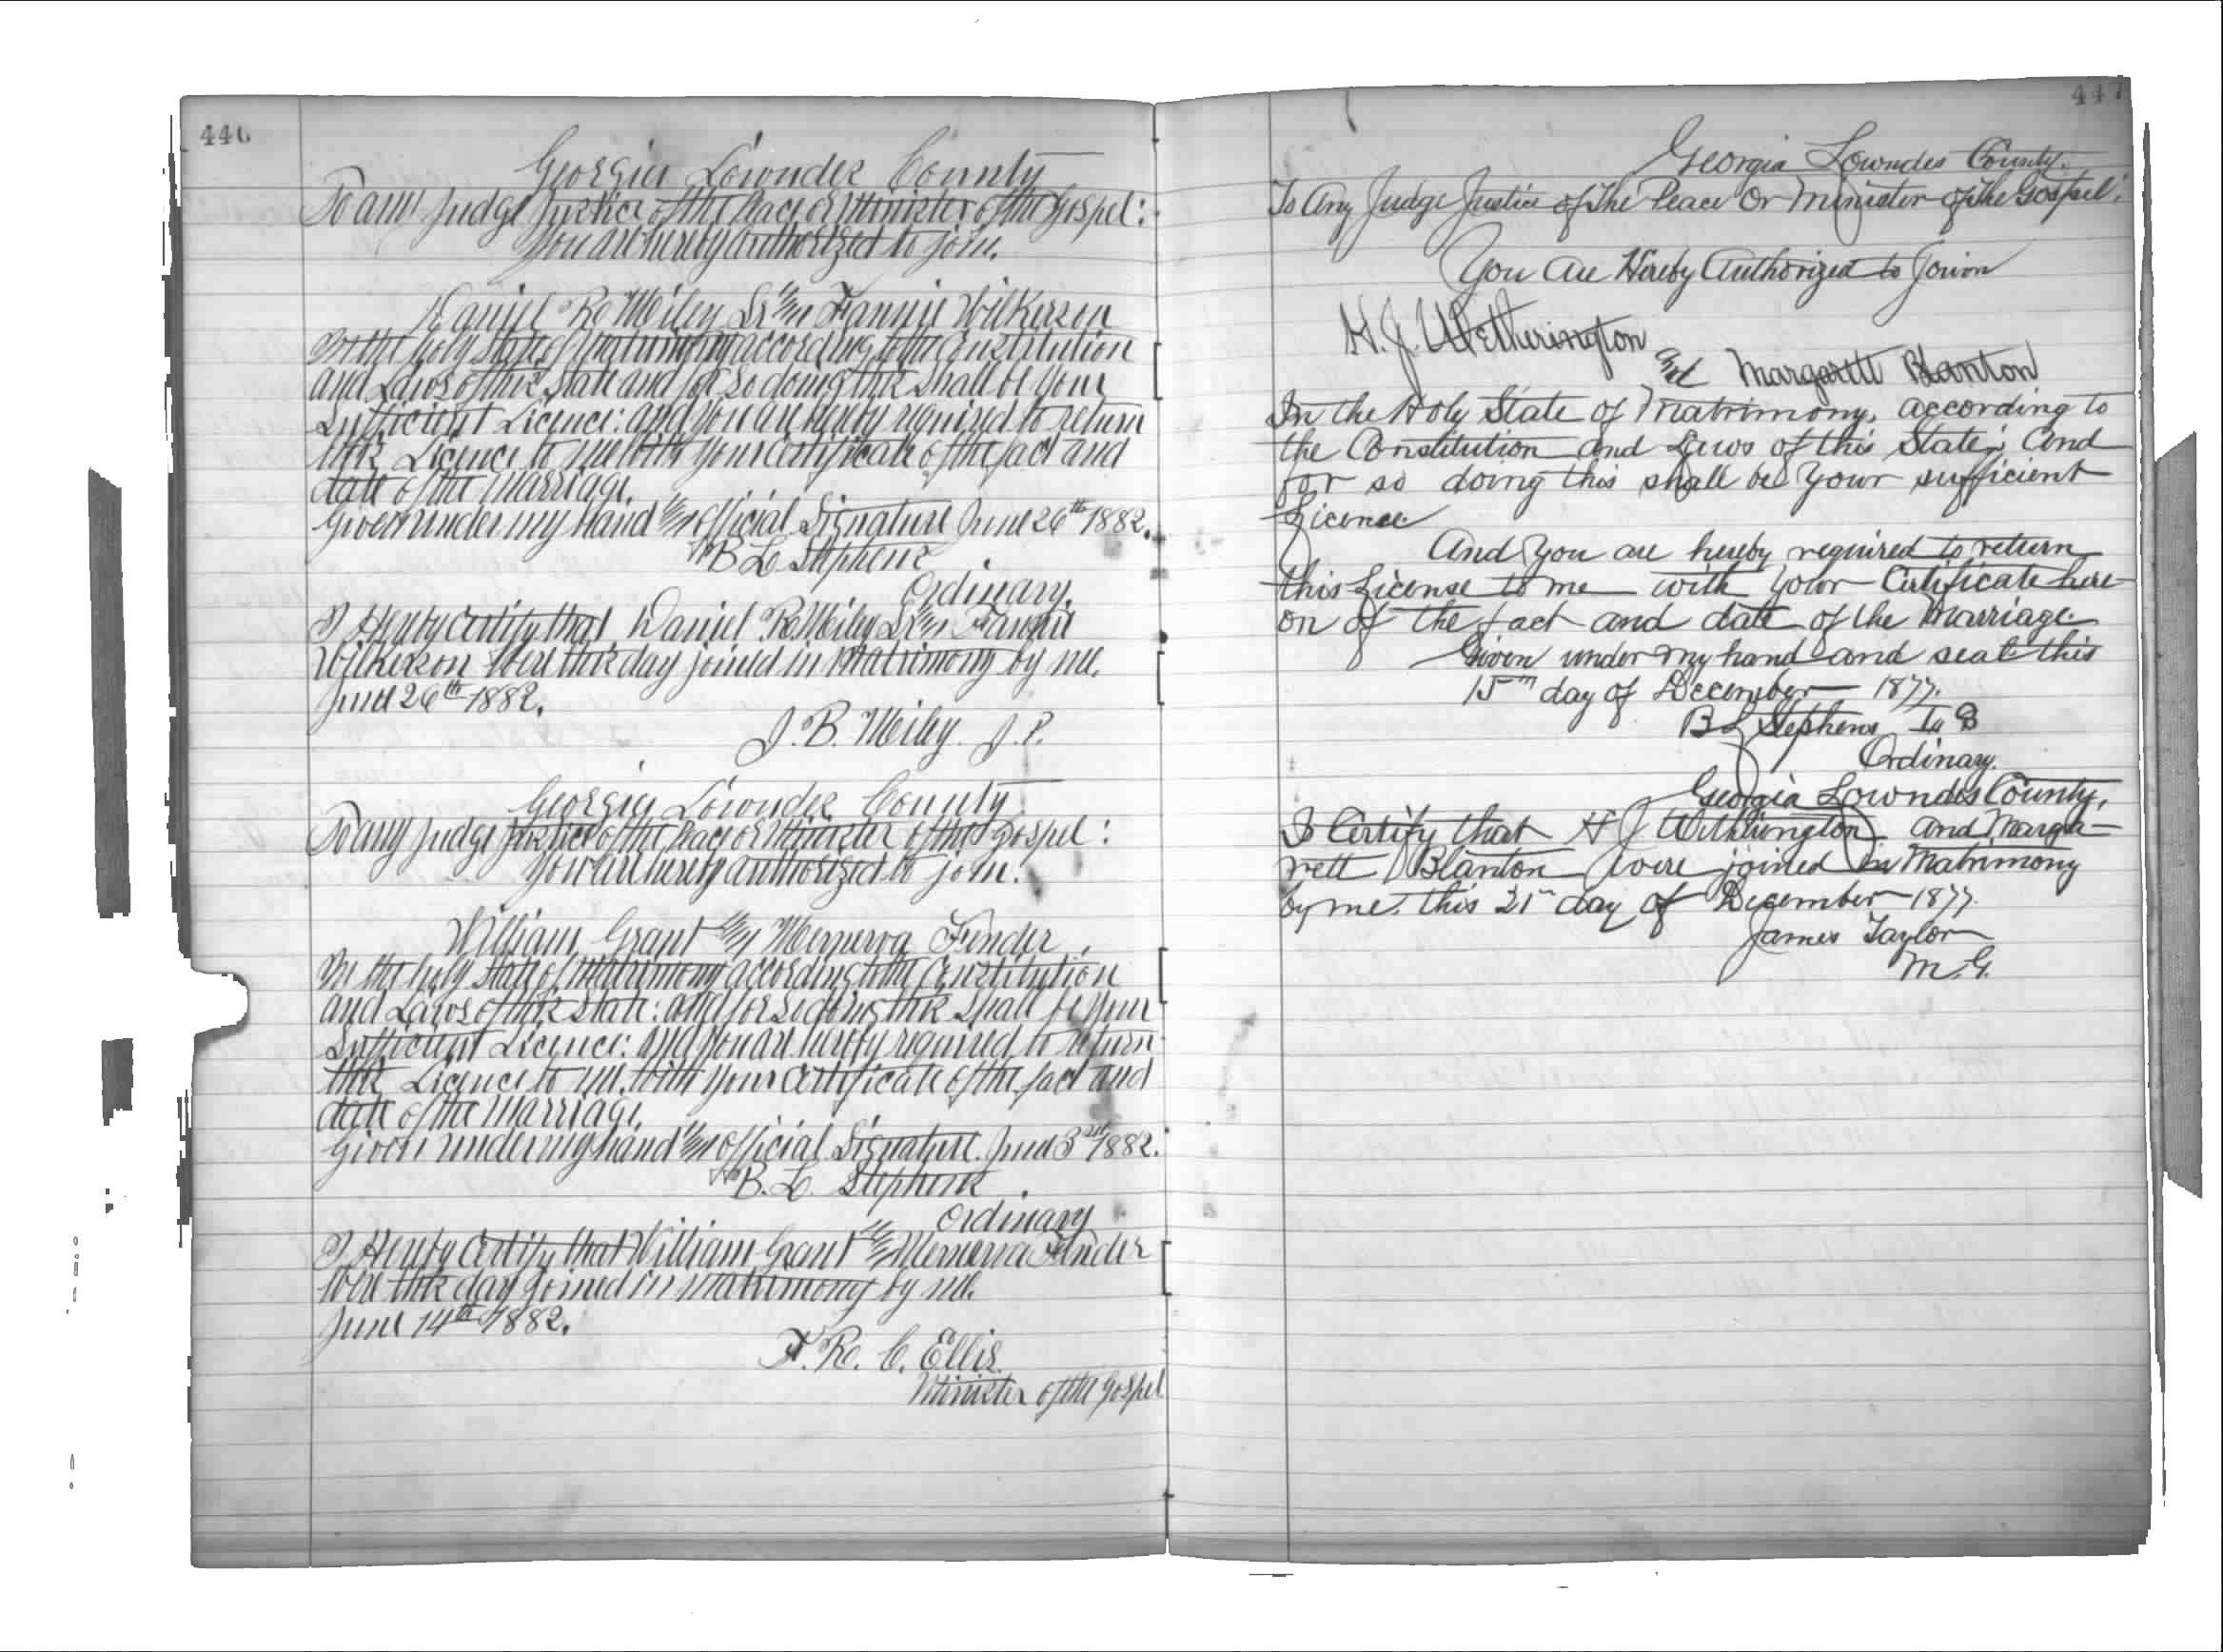 446
Georgia Lowndes County
To any Judge Justice of the Peace or Minister of the Gospel:
You are hereby authorized to join.
Daniel R. Wiley Sr and Fannie Wilkerson
In the holy State of Matrimony according to the Constitution
and Laws of this State and for so doing this shall be your
Sufficient Licence: and you are hereby required to return
this Licence to me with your certificate of the fact and
date of the Marriage.
Given under my hand and official Signature June 26th 1882.
B L Stephens
Ordinary.
I Hereby certify that Daniel R. Wiley Sr and Fannie
Wilkerson were this day joined in Matrimony by me.
June 26th 1882.
J. B. Wiley. J.P.
Georgia Lowndes County
To any Judge Justice of the Peace or Minister of the Gospel:
You are hereby authorized to join.
William Grant and Menerva Fender.
In the holy State of Matrimony according to the Constitution
and Laws of this State: and for so doing this shall be your
Sufficient Licence: and you are hereby required to return
this Licence to me with your certificate of the fact and
date of the Marriage.
Given under my hand and official Signature. June 3rd 1882.
B. L. Stephens
Ordinary
I Hereby certify that William Grant and Menerva Fender
were this day joined in matrimony by me.
June 14th 1882.
F. R. C. Ellis.
Minister of the Gospel
447
Georgia Lowndes County.
To Any Judge Justice of the Peace Or Minister of the Gospel:
You Are Hereby Authorized to Joion
H. J. Wetherington
and Margarett Blanton
In the Holy State of Matrimony, according to
the Constitution and Laws of this State; and
for so doing this shall be your sufficient
Licence
And you are hereby required to return
this License to me with your Certificate here-
on of the fact and date of the Marriage.
Given under my hand and seal this
15th day of December 1877.
B L Stephens
Ordinary.
Georgia Lowndes County,
I Certify that H J Wetherington and Marga-
rett Blanton were joined in Matrimony
by me. this 21st day of December 1877.
James Taylor
M.G.